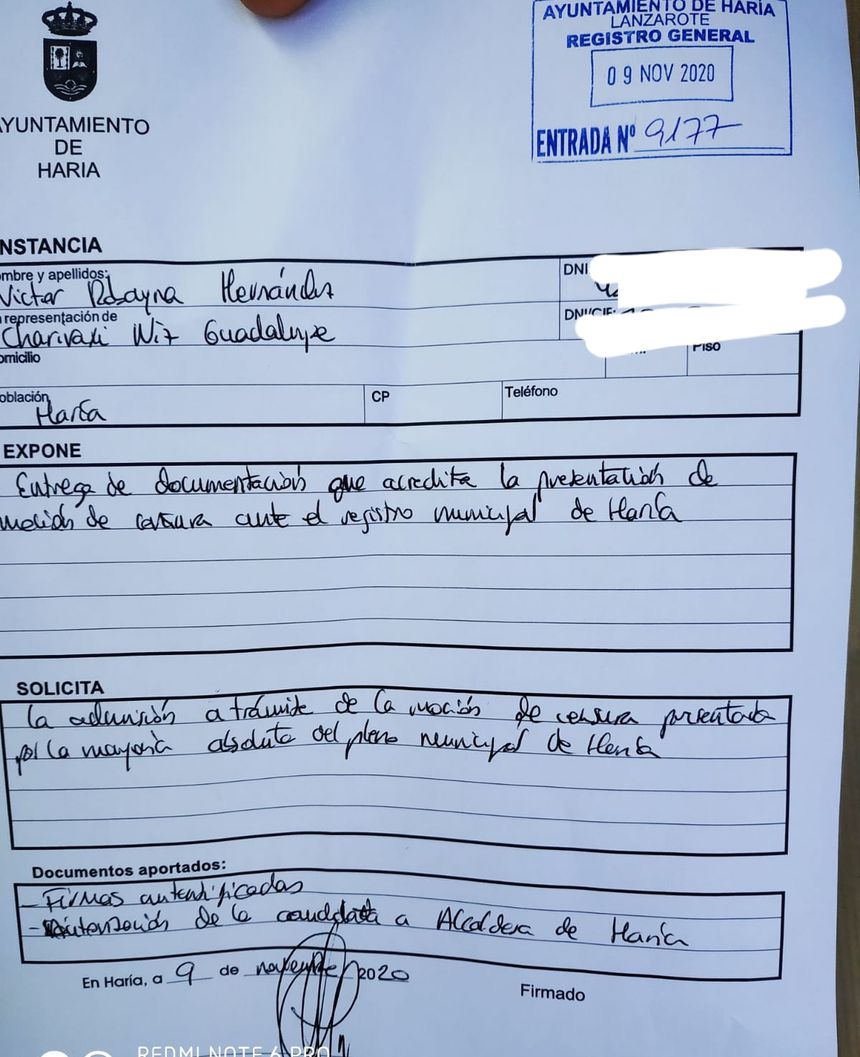 AYUNTAMIENTO
DE
HARIA
AYUNTAMIENTO DE HARÍA
LANZAROTE
REGISTRO GENERAL
09 NOV 2020
ENTRADA Nº 9177
NSTANCIA
mbre y apellidos:
Victor Robayna Hernández
representación de
Chari
Niz Guadalupe
DNI
DNI/CIF:
omicilio
Piso
oblación
Haría
CP
Teléfono
EXPONE
Entrega de documentación que acredita la presentación de
moción de censura ante el registro municipal de Haría
SOLICITA
la admisión a trámite de la moción de censura presentada
por la mayoría absoluta del pleno municipal de Haría
Documentos aportados:
- Firmas autentificadas
- Autorización de la candidata a Alcaldesa de Haría
En Haría, a 9 de noviembre 2020
Firmado
REDMI NOTE 6 PRO